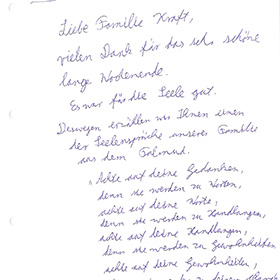 Liebe Familie Kraft,
vielen Dank für das sehr schöne
lange Wochenende.
Es war für die Seele gut.
Deswegen erzählen wir Ihnen einen
der Seelensprüche unserer Familie
aus dem Talmud.
„Achte auf deine Gedanken,
denn sie werden zu Worten,
achte auf deine Worte,
denn sie werden zu Handlungen,
achte auf deine Handlungen,
denn sie werden zu Gewohnheiten
achte auf deine Gewohnheiten,